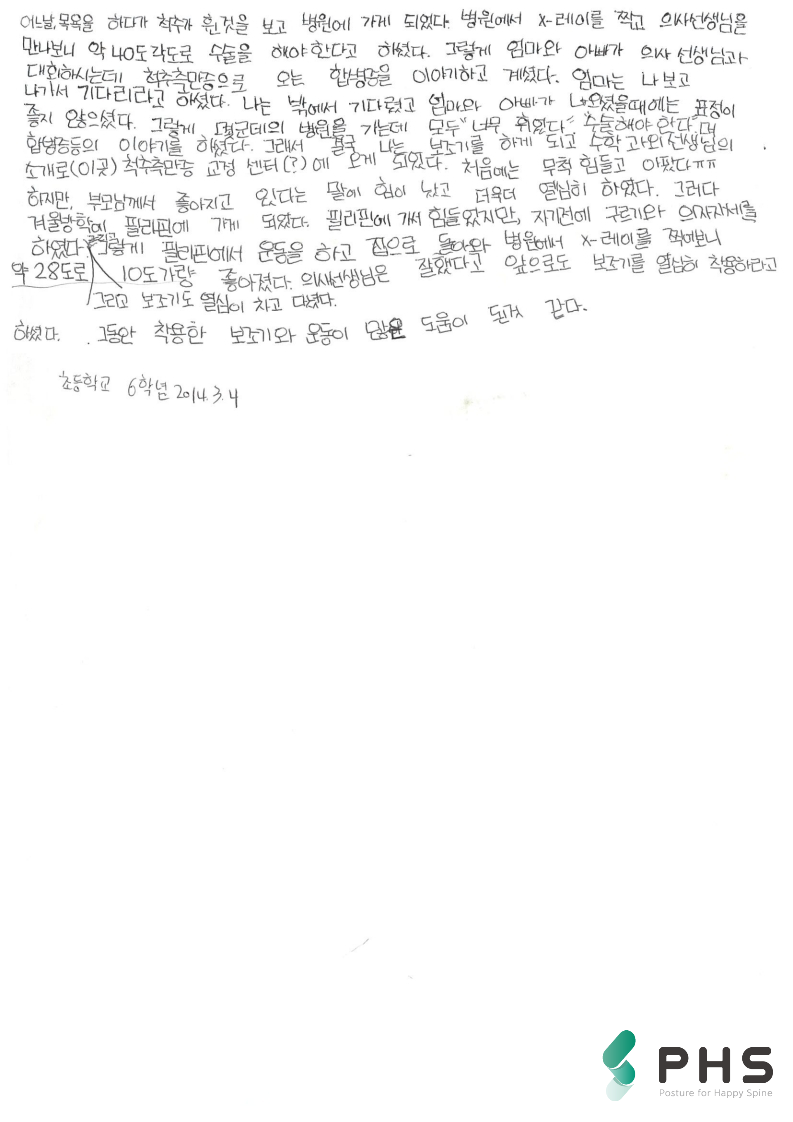 어느날, 목욕을 하다가 척추가 휜것을 보고 병원에 가게 되었다. 병원에서 X-레이를 찍고 의사선생님을
만나보니 약 40도각도로 수술을 해야한다고 하셨다. 그렇게 엄마와 아빠가 의사 선생님과
대화하시는데 척추측만증으로 오는 합병증을 이야기하고 계셨다. 엄마는 나보고
나가서 기다리라고 하셨다. 나는 밖에서 기다렸고 엄마와 아빠가 나오셨을때에는 표정이
좋지 않으셨다. 그렇게 몇군데의 병원을 가는데 모두" 너무 휘었다" "수술해야한다"며
합병증등의 이야기를 하셨다. 그래서 결국 나는 보조기를 하게 되고 수학과외선생님의
소개로(이곳) 척추측만증 교정 센터(?)에 오게 되었다. 처음에는 무척 힘들고 아팠다ㅠㅠ
하지만, 부모님께서 좋아지고 있다는 말에 힘이 났고 더욱더 열심히 하였다. 그러다
겨울방학에 필리핀에 가게 되었다. 필리핀에 가서 힘들었지만, 자기전에 구르기와 의자자세를
하였다. 그렇게 필리핀에서 운동을 하고 집으로 돌아와 병원에서 X-레이를 찍어보니
약 28도로 10도가량 좋아졌다. 의사선생님은 잘했다고 앞으로도 보조기를 열심히 착용하라고
그리고 보조기도 열심이 차고 다녔다.
하셨다. 그동안 착용한 보조기와 운동이 많은 도움이 된것 같다.
초등학교 6학년 2014.3.4
PHS
Posture for Happy Spine